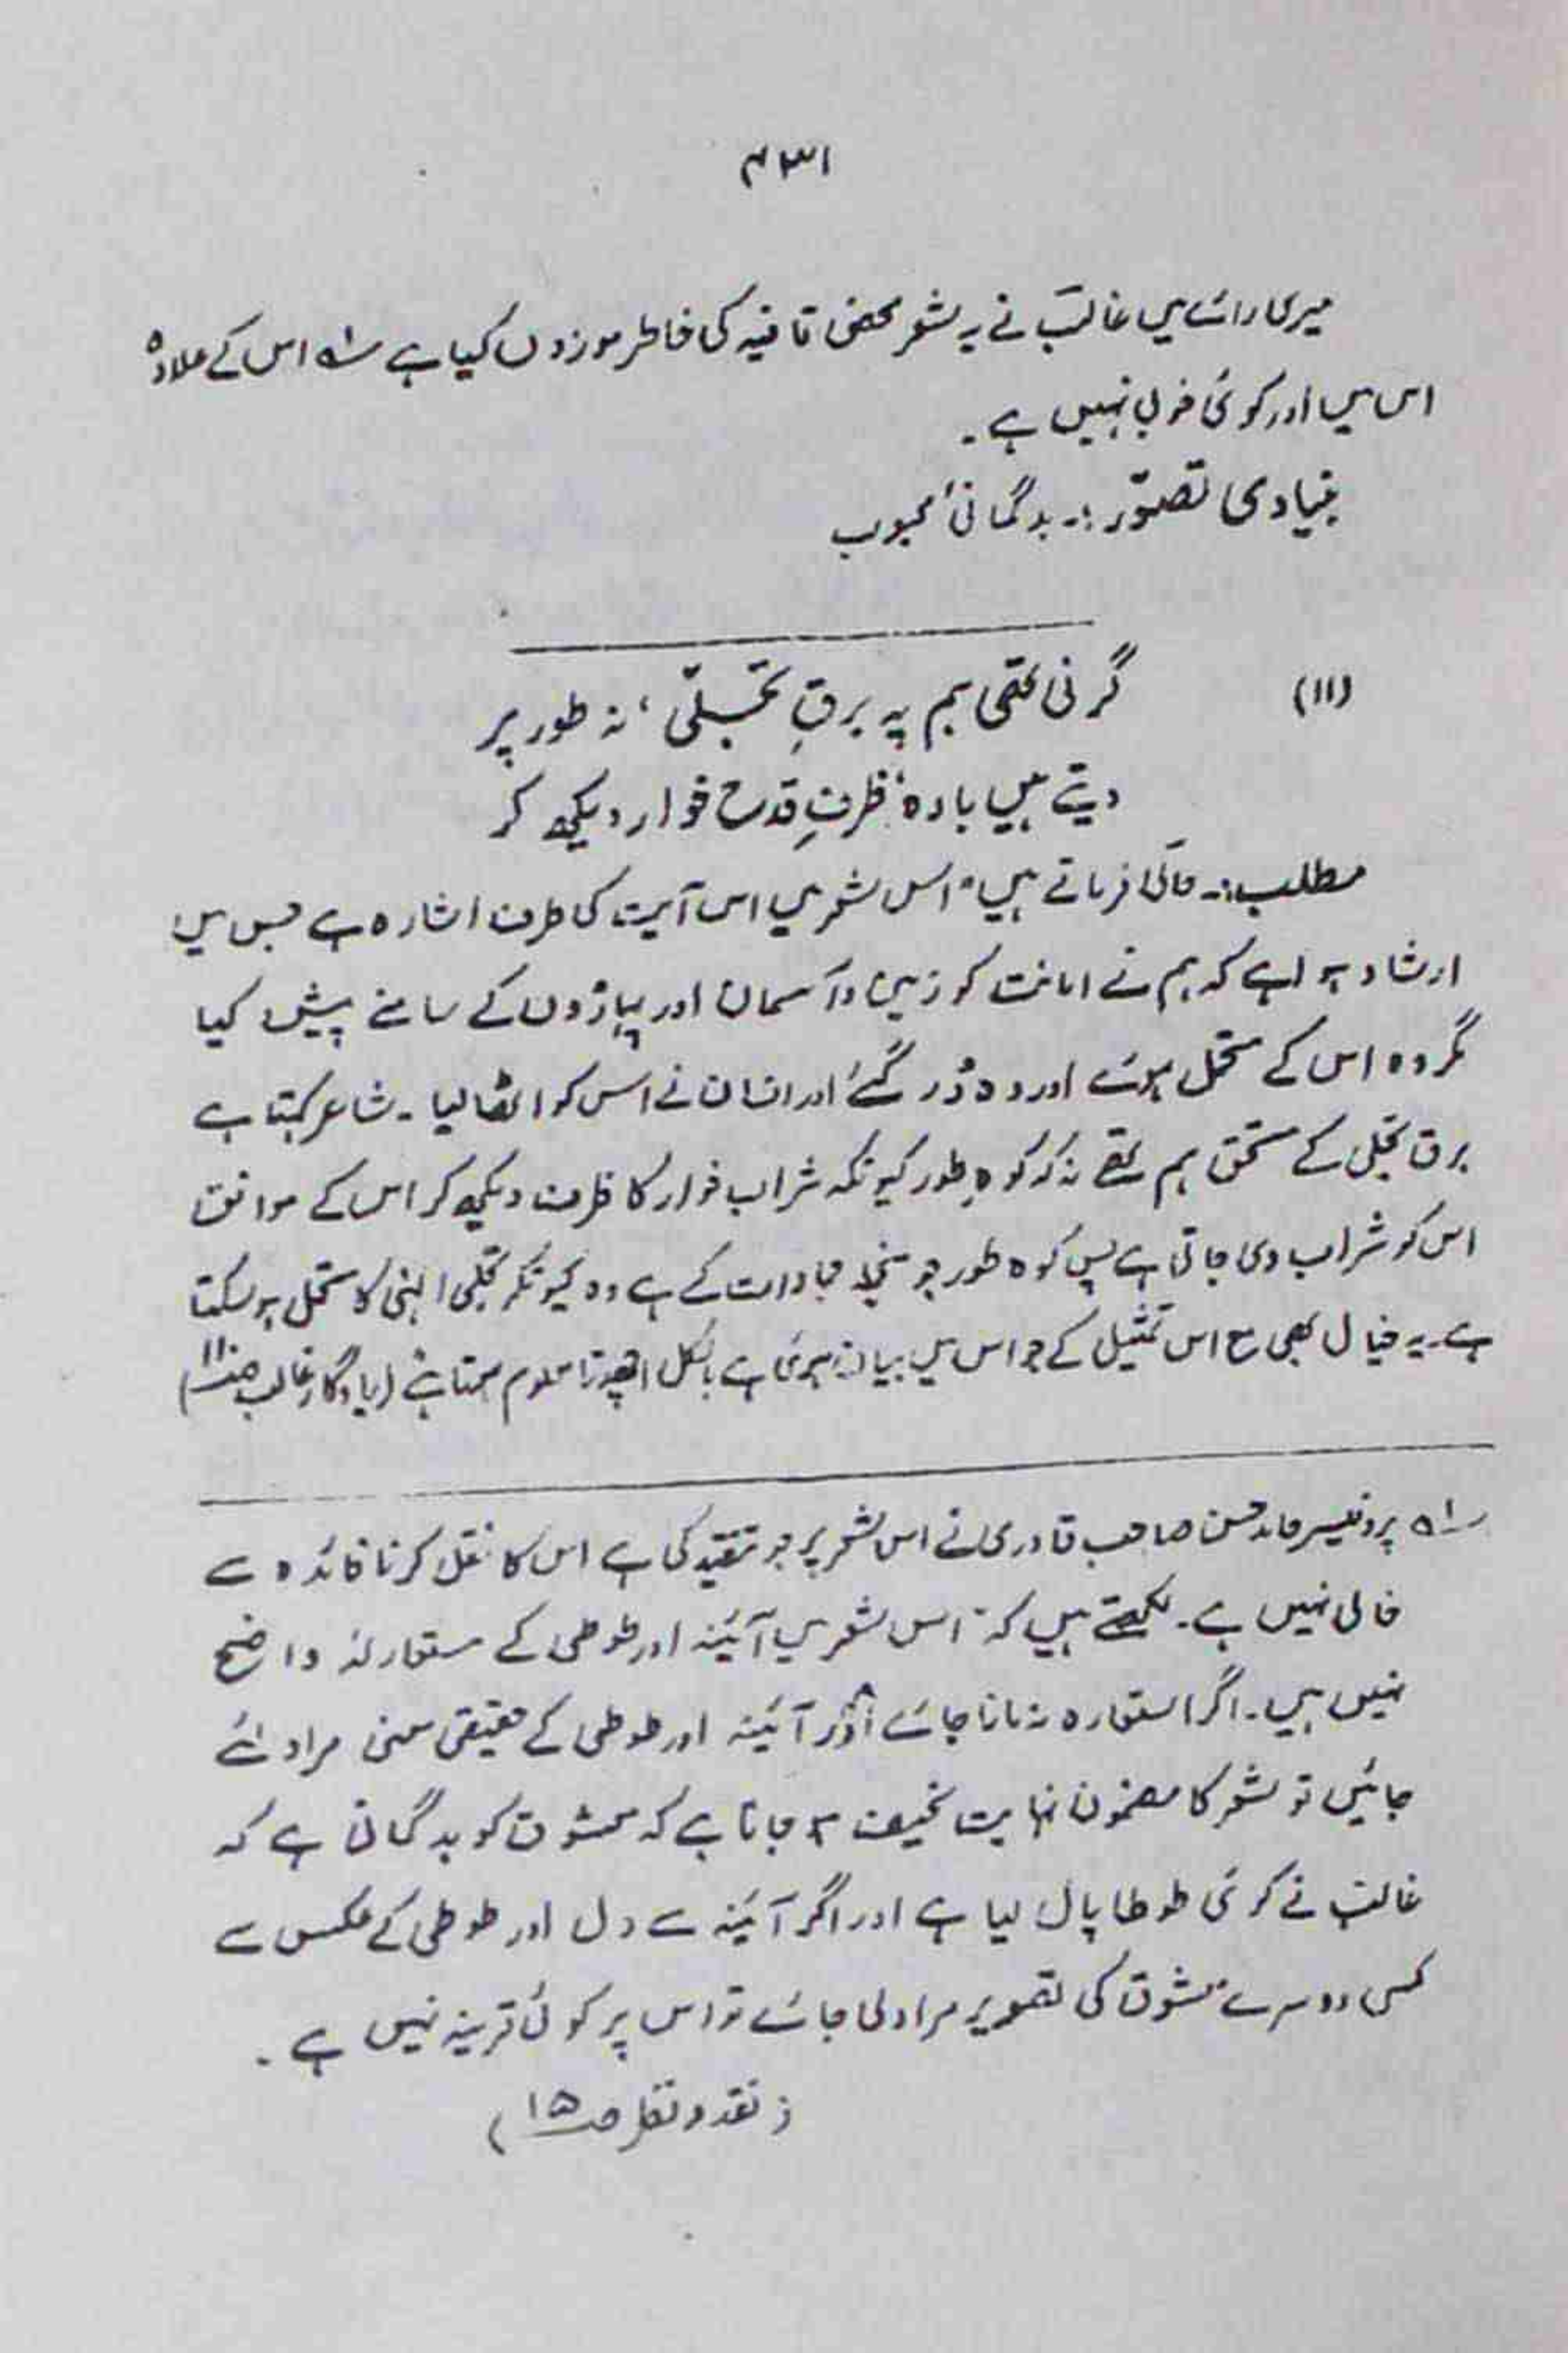 ۴۳۱
میری رائے میں غالبؔ نے یہ شعر محض قافیہ کی خاطر موزوں کیا ہے ؎۱ اس کے علاوہ
اس میں اور کوئی خوبی نہیں ہے۔
بنیادی تصوّر :۔ بدگمانیٔ محبوب
(۱۱) گرنی تھی ہم پہ برقِ تجلّی، نہ طور پر
دیتے ہیں بادہ، ظرفِ قدح خوار دیکھ کر
مطلب:۔ حالیؔ فرماتے ہیں "اس شعر میں اس آیت کی طرف اشارہ ہے جس میں
ارشاد ہوا ہے کہ ہم نے امانت کو زمین و آسمان اور پہاڑوں کے سامنے پیش کیا
مگر وہ اس کے متحمل ہوئے اور وہ ڈر گئے اور انسان نے اس کو اٹھا لیا۔ شاعر کہتا ہے
برق تجلی کے مستحق ہم تھے نہ کہ کوہِ طور کیونکہ شراب خوار کا ظرف دیکھ کر اس کے موافق
اس کو شراب دی جاتی ہے پس کوہ طور جو منجملہ جمادات کے ہے وہ کیونکر تجلی الہٰی کا متحمل ہو سکتا
ہے۔ یہ خیال بھی مع اس تمثیل کے جو اس میں بیان ہوئی ہے بالکل اچھوتا معلوم ہوتا ہے" (یادگار غالب صفحہ ۱۱)
؎۱ پروفیسر حامد حسن صاحب قادری نے اس شعر پر جو تنقید کی ہے اس کا نقل کرنا فائدہ سے
خالی نہیں ہے۔ لکھتے ہیں کہ "اس شعر میں آئینہ اور طوطی کے مستعار لہٗ واضح
نہیں ہیں۔ اگر استعارہ نہ مانا جائے اور آئینہ اور طوطی کے حقیقی معنی مراد لئے
جائیں تو شعر کا مضمون نہایت خفیف ہو جاتا ہے کہ معشوق کو بدگمانی ہے کہ
غالبؔ نے کوئی طوطا پال لیا ہے اور اگر آئینہ سے دل اور طوطی کے عکس سے
کسی دوسرے معشوق کی تصویر مراد لی جائے تو اس پر کوئی قرینہ نہیں ہے۔
(نقد و نظر صـ ۱۵)